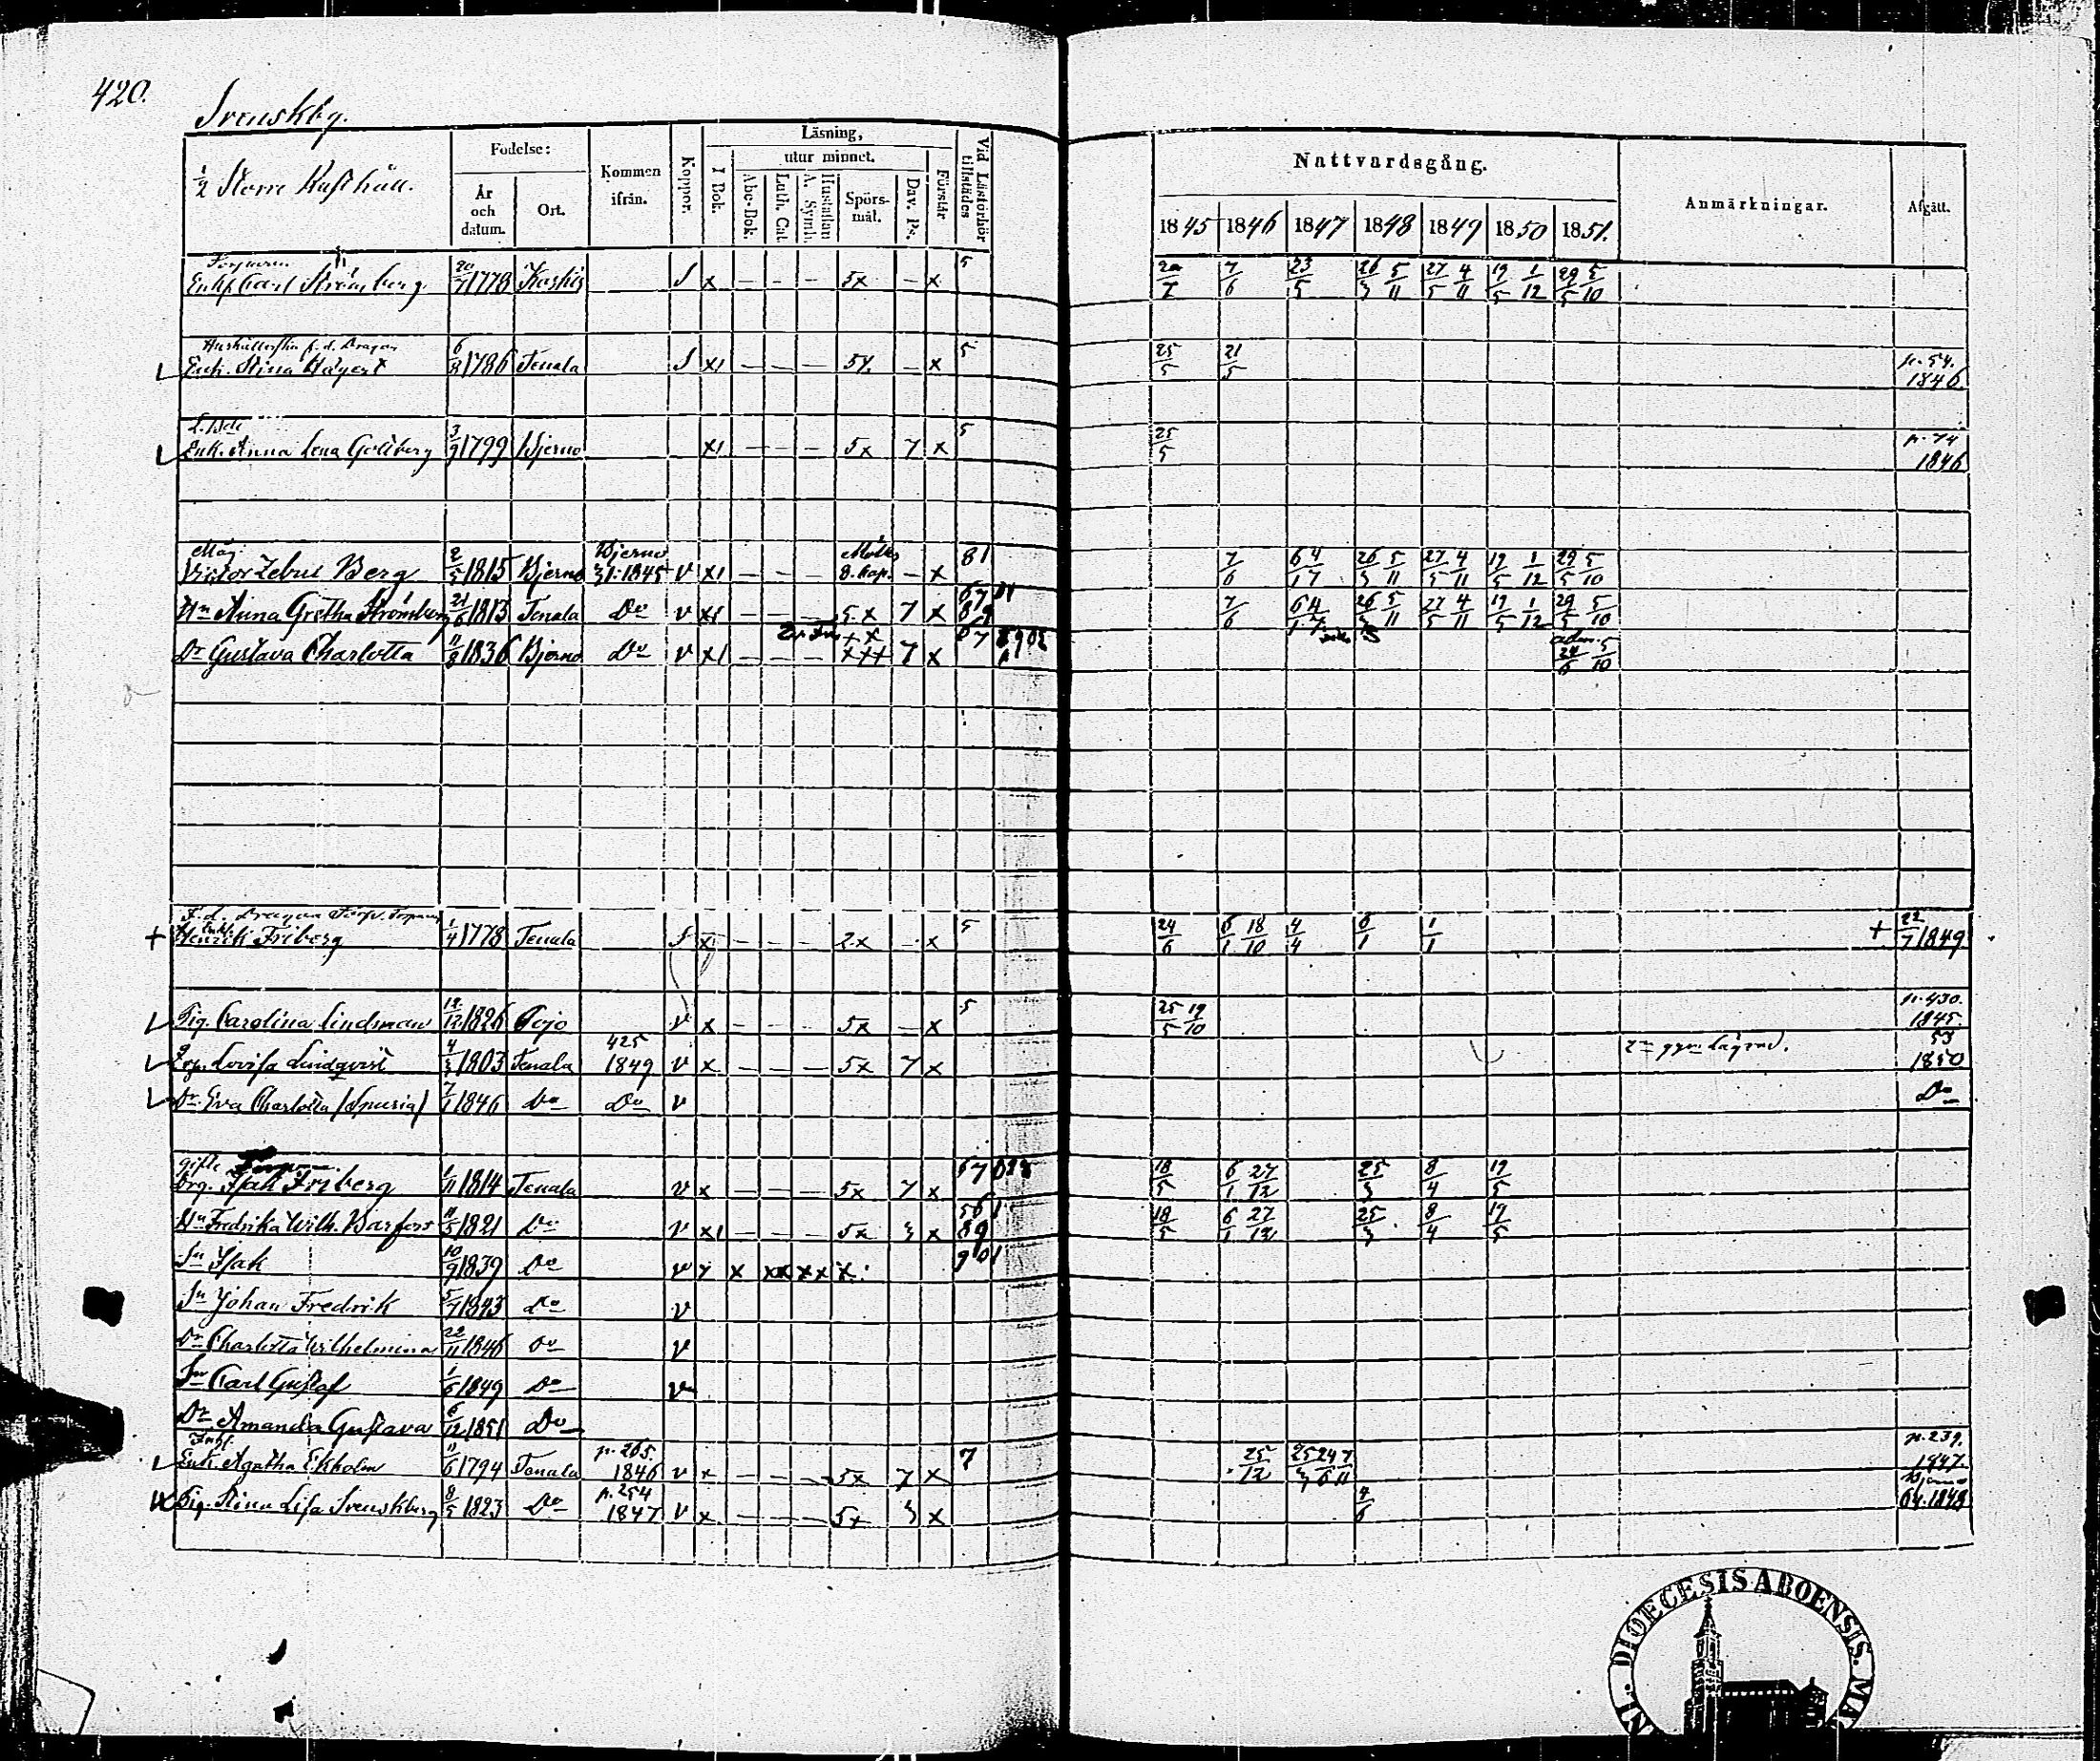 420.
Svenskby.
½ Storre Rusthåll.
Födelse:
År och datum.
Ort.
Kommen ifrån.
Koppor.
Läsning,
I Bok.
utur minnet.
Abc-Bok.
Luth. Cat.
Hustaflan A. Symb.
Spörsmål.
Dav. Ps.
Förstår
Vid Läsförhör tillstädes
Nattvardsgång.
1845 1846 1847 1848 1849 1850 1851.
Anmärkningar.
Afgått.
Enkl. Carl Strömberg 20/7 1778 S x — — — 5x — x 5 7/6 23/5 26/3 5/11 27/5 4/11 19/5 1/12 29/5 5/10
Enk. Stina 6/8 1786 Tenala S x1 — — — 5x — x 5 25/5 21/5 p. 54. 1846
Enk. Anna Lena 3/9 1799 Bjerno x1 — — — 5x 7 x 5 25/5 p. 74 1846
Victor Berg 2/5 1815 Bjerno Bjerno 1845 v x1 8. kap. — x 81 7/6 6/1 4/7 26/3 5/11 27/5 4/11 19/5 1/12 29/5 5/10
Hu Anna Gretha Strömberg 21/6 1813 Tenala Do v x1 — — — 5x 7 x 7/6 6/1 4/7 26/3 5/11 27/5 4/11 19/5 1/12 29/5 5/10
Dr Gustava Charlotta 11/8 1836 Bjerno Do v x1 — — — 7 x adm. 24/6 5/10
F.d. Dragon
+ Henrik Friberg 1/4 1778 Tenala S x — — — 2x — x 5 24/6 6/1 18/10 4/4 6/1 1/1 + 22/7 1849
Pig. Carolina Lindman 19/12 1826 Pojo v x — — — 5x — x 5 25/5 19/10 p. 430. 1845.
Lovisa Lindqvist 1803 Tenala 425 1849 v x — — — 5x 7 x 53 1850
Dr. Eva Charlotta (Spuria) 7/1 1846 Do Do v Do
gifte
Drg. Isak Friberg 1/11 1814 Tenala v x — — — 5x 7 x 18/5 6/1 27/12 25/3 8/4 19/5
Hu Fredrika Wilh. 11/5 1821 Do v x1 — — — 5x 3 x 18/5 6/1 27/12 25/3 8/4 19/5
Sn Isak 10/9 1839 Do v x x xx xx x 901
Sn Johan Fredrik 5/7 1843 Do v
Dr Charlotta Wilhelmina 22/11 1846 Do v
Sn Carl Gustaf 1/6 1849 Do v
Dr Amanda Gustava 6/12 1851 Do
Enk. Agatha Ekholm 11/6 1794 Tenala p. 265. 1846 v x — — — 5x 7 x 7 25/12 25/3 24/6 7/11 p. 239. 1847.
Pig. Stina Lisa Svenskberg 8/5 1823 Do p. 254 1847 v x — — — 5x 3 x 4/6 Bjerno 64. 1848
DIOECESIS ABOENSIS.